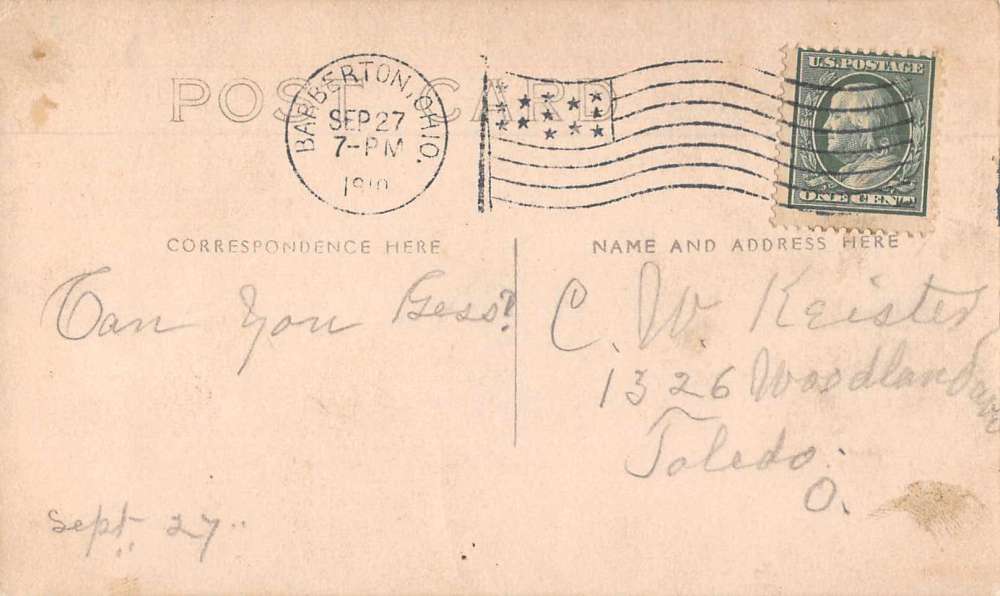 POST CARD
BARBERTON, OHIO.
SEP 27
7-PM
1910
U.S. POSTAGE
ONE CENT
CORRESPONDENCE HERE
NAME AND ADDRESS HERE
Can you Gess?
Sept. 27
C. W. Keister
1326 Woodland Ave
Toledo.
O.